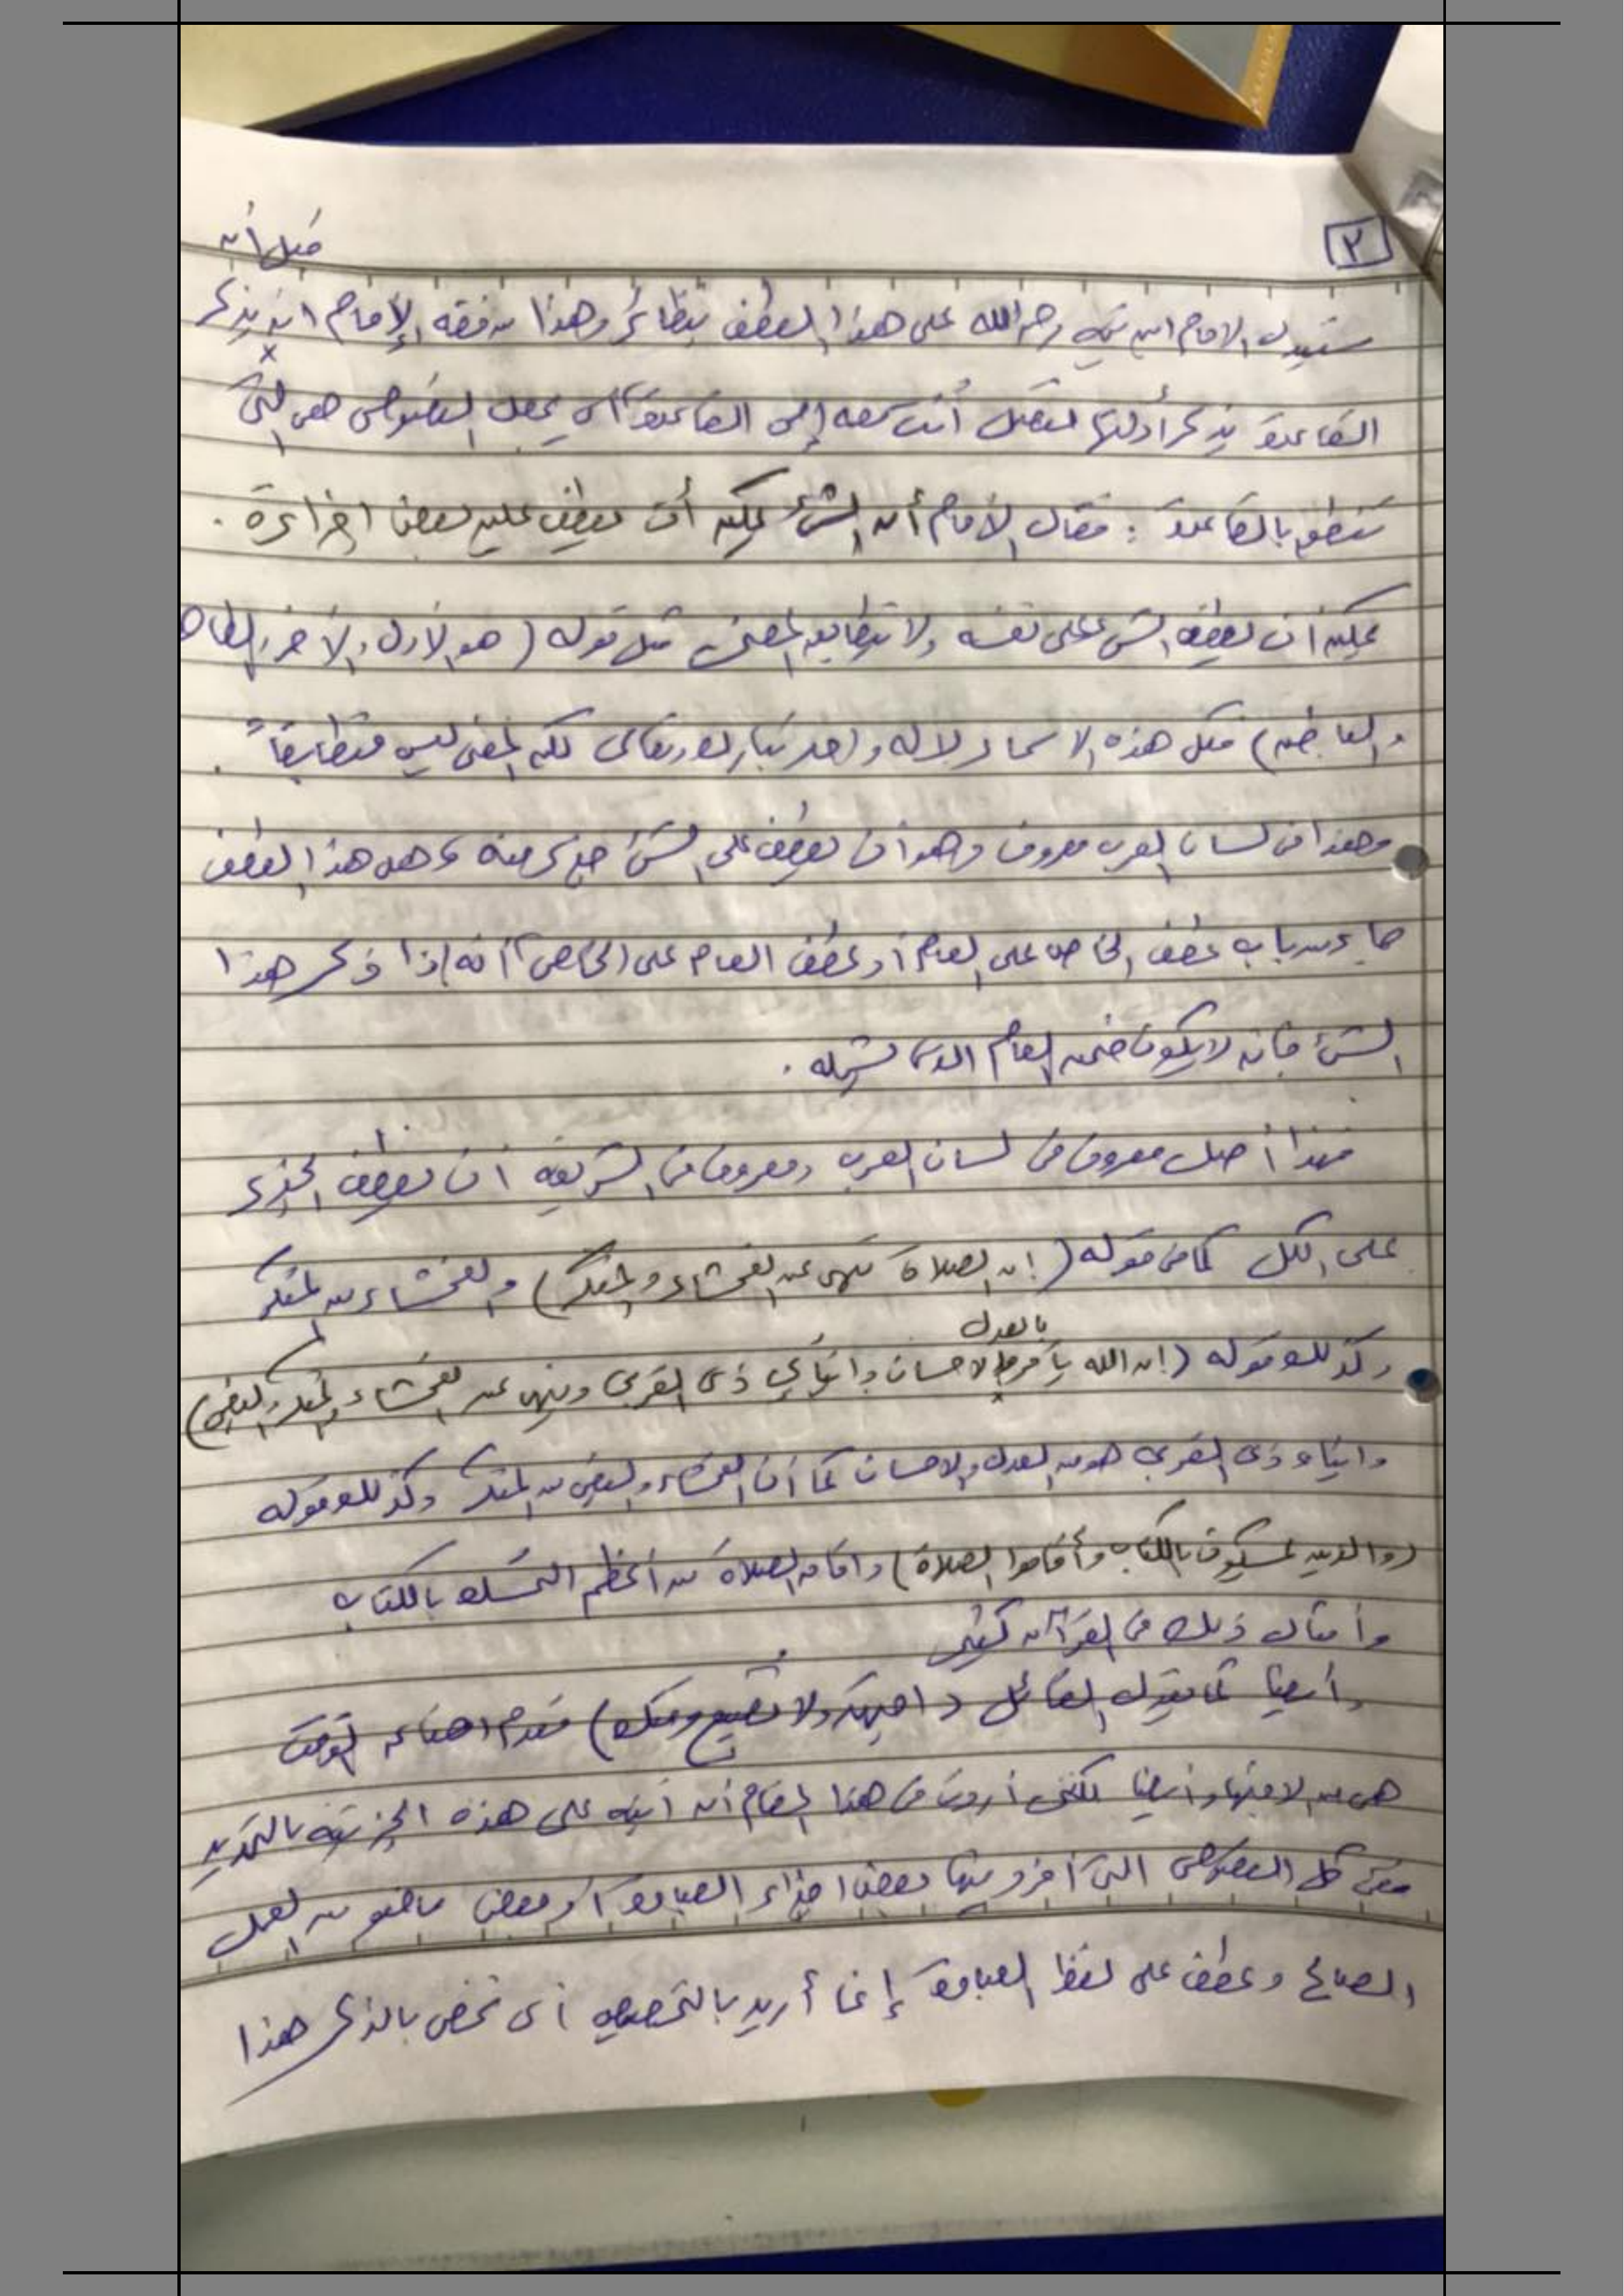 ٢
قبل أن
ستدل الامام ابن تيميه رحمه الله على هذا العطف بنظائر وهذا من فقه الإمام انه يذكر
القاعدة يذكر أدلتها لتصل أنت معه إلى القاعدة أي يجعل النصوص هى التى
تنطق بالقاعدة : فقال الامام أن الشئ يمكن أن يعطف عليه بعض اجزاءه .
يمكن أن يعطف الشئ على نفسه ولا يتطابق المعنى مثل قوله ( هو الاول والآخر والظاهر
والباطن ) فكل هذه الاسماء لاله واحد تبارك وتعالى لكن المعنى ليس متطابقاً .
وهذا فى لسان العرب معروف وهو أن يعطف على الشئ جزء منه وهل هذا العطف
جاء من باب عطف الخاص على العام أو عطف العام على الخاص أنه إذا ذكر هذا
الشئ فانه لا يكون ضمن العام الذى شمله .
فهذا أصل معروف فى لسان العرب ومعروف فى الشريعه أن يعطف الجزء
على الكل كما فى قوله ( إن الصلاة تنهى عن الفحشاء والمنكر ) والفحشاء من المنكر
بالعدل
وكذلك قوله ( إن الله يأمر والاحسان وايتائي ذى القربى وينهى عن الفحشاء والمنكر والبغى )
وايتاء ذى القربى هو من العدل والاحسان كما أن الفحشاء والبغى من المنكر وكذلك قوله
( والذين يمسكون بالكتاب وأقاموا الصلاة ) واقامه الصلاة من أعظم التمسك بالكتاب
وأمثال ذلك فى القرآن كثير
وأيضا كما يقول القائل ( اجتهد ولا تضيع وقتك ) فعدم اضاعه الوقت
هى من الاجتهاد أيضا لكنى أردت فى هذا المقام أن أنبه على هذه الجزئيه بالتحديد
ففى كل النصوص التى أفرد فيها بعض اجزاء العبادة أو بعض ما هو من العمل
الصالح وعطف على لفظ العبادة إنما أريد بالتخصيص أى تخص بالذكر هذا